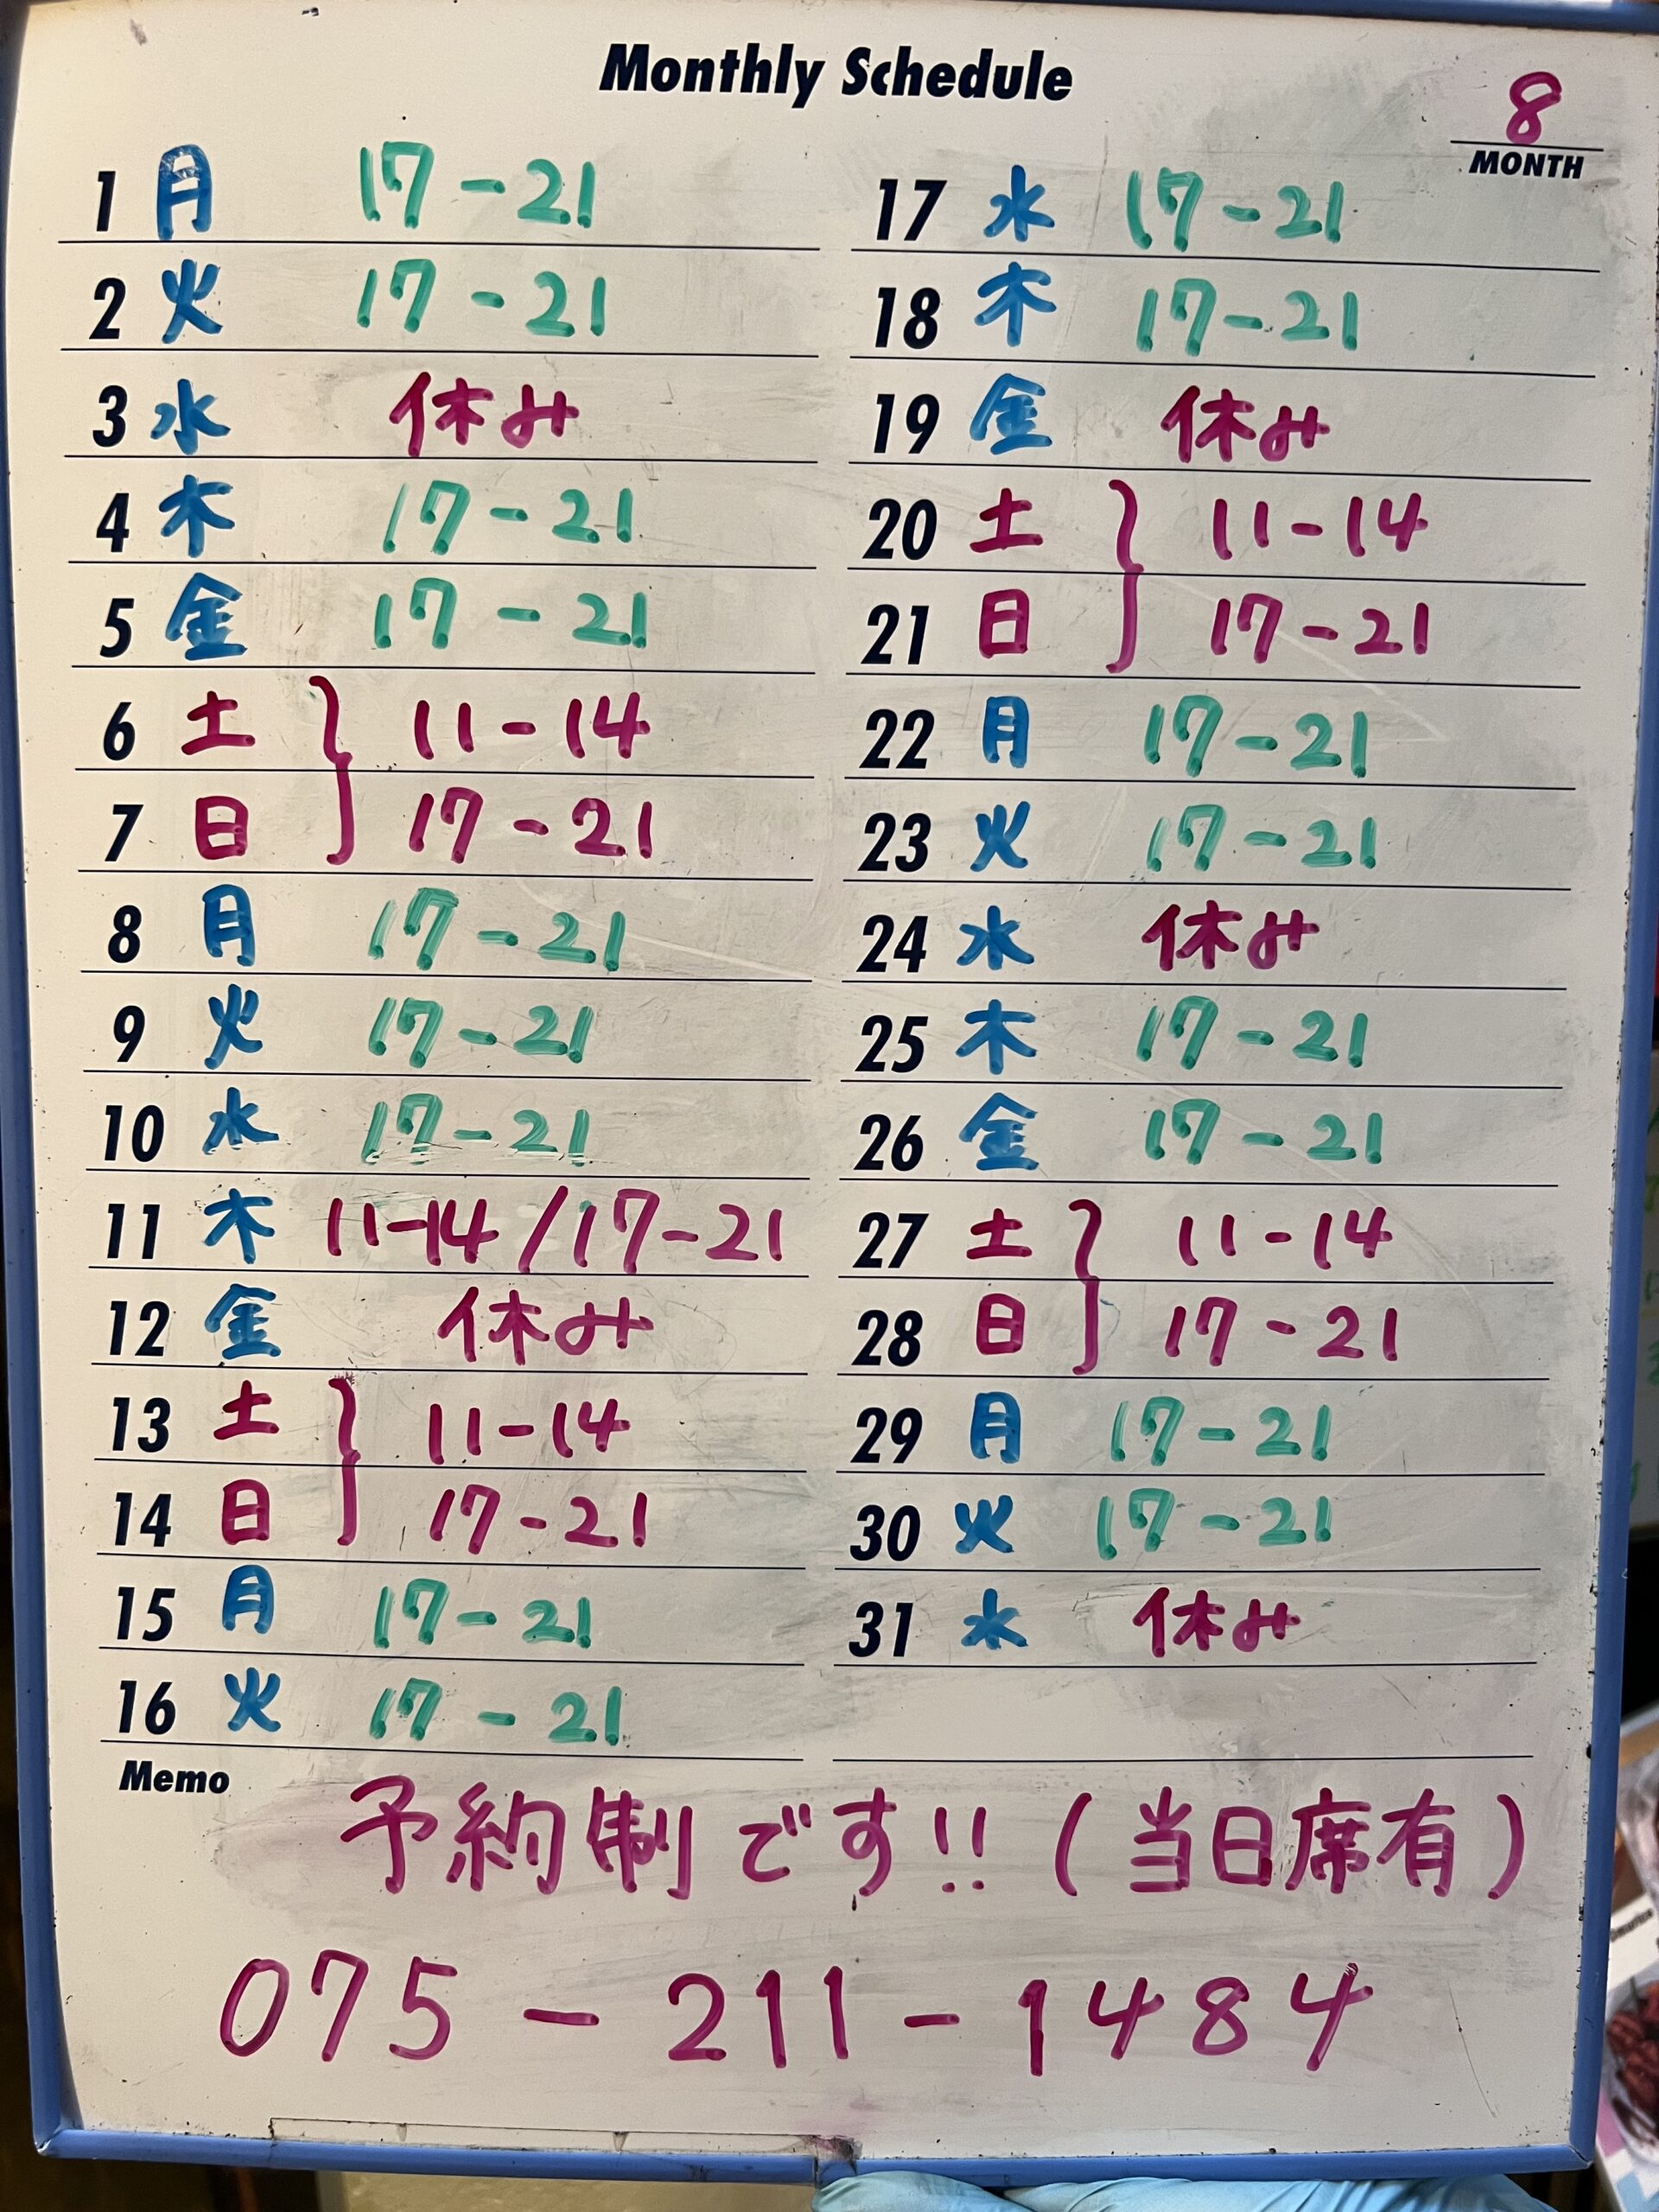 Monthly Schedule
8
MONTH
1 月 17-21
2 火 17-21
3 水 休み
4 木 17-21
5 金 17-21
6 土 } 11-14
7 日 17-21
8 月 17-21
9 火 17-21
10 水 17-21
11 木 11-14/17-21
12 金 休み
13 土 } 11-14
14 日 17-21
15 月 17-21
16 火 17-21
17 水 17-21
18 木 17-21
19 金 休み
20 土 } 11-14
21 日 17-21
22 月 17-21
23 火 17-21
24 水 休み
25 木 17-21
26 金 17-21
27 土 } 11-14
28 日 17-21
29 月 17-21
30 火 17-21
31 水 休み
Memo
予約制です!! (当日席有)
075-211-1484